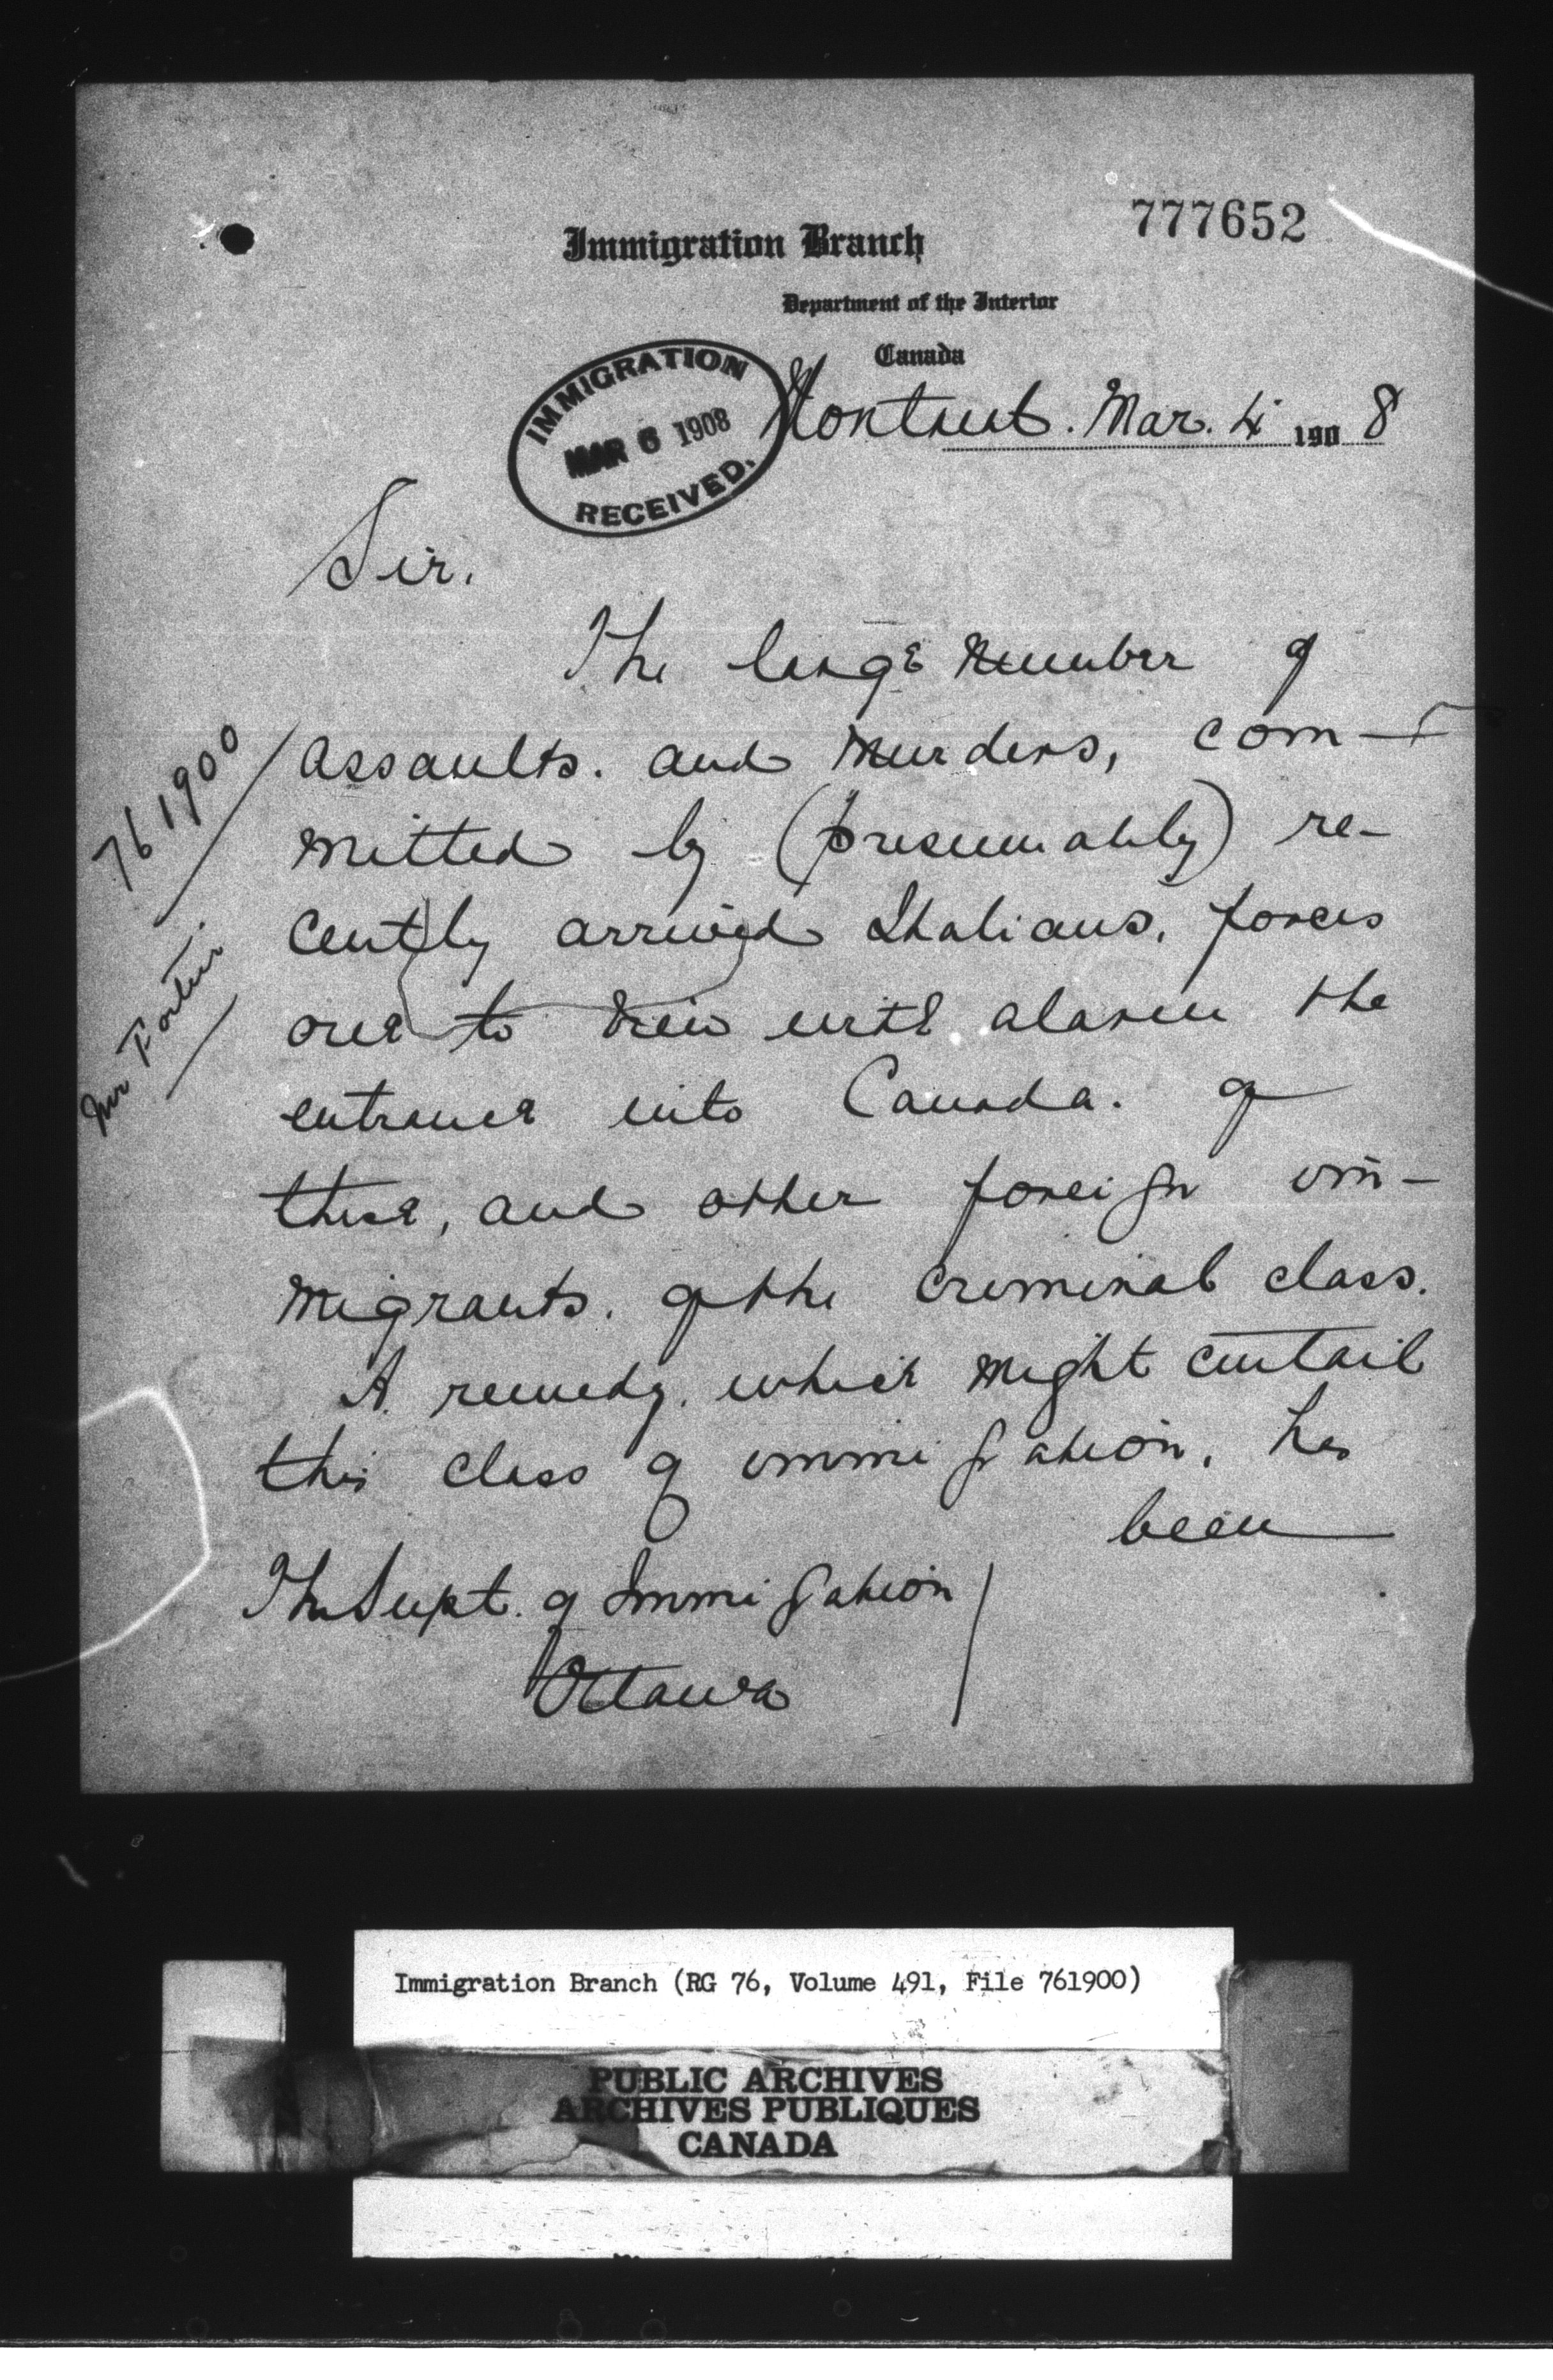 777652
Immigration Branch
Department of the Interior
Canada
IMMIGRATION
MAR 6 1908
RECEIVED.
Montreal. Mar. 4 1908
Sir.
The large number of
assaults. and murders, com-
mitted by (presumably) re-
cently arrived Italians, forces
one to view with alarm the
entrance into Canada. of
these, and other foreign im-
migrants. of the criminal class.
A remedy. which might curtail
this class of immigration, has
been
The Supt. of Immigration
Ottawa
761900
Mr Fortier
Immigration Branch (RG 76, Volume 491, File 761900)
PUBLIC ARCHIVES
ARCHIVES PUBLIQUES
CANADA